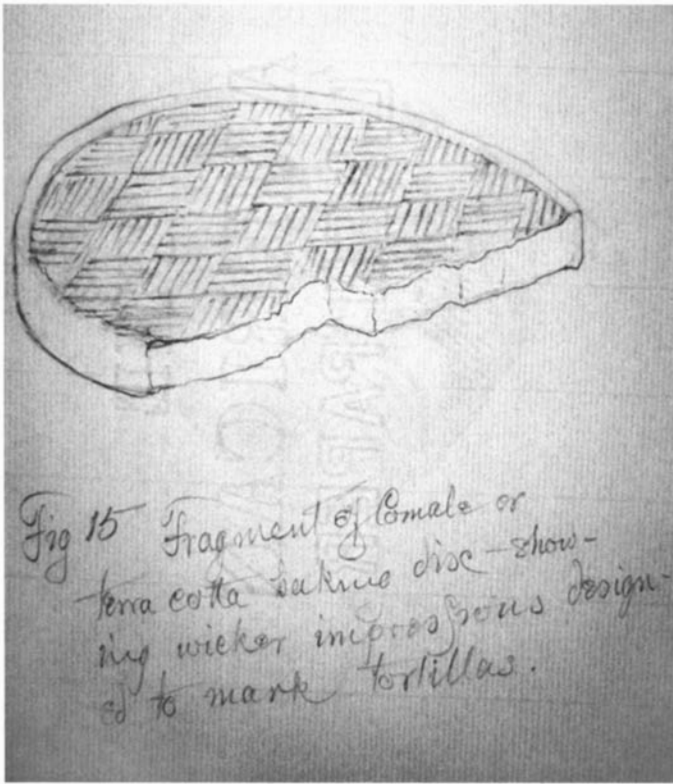 Fig 15 Fragment of Comale or
terra cotta baking disc - show-
ing wicker impressions design-
ed to mark tortillas.